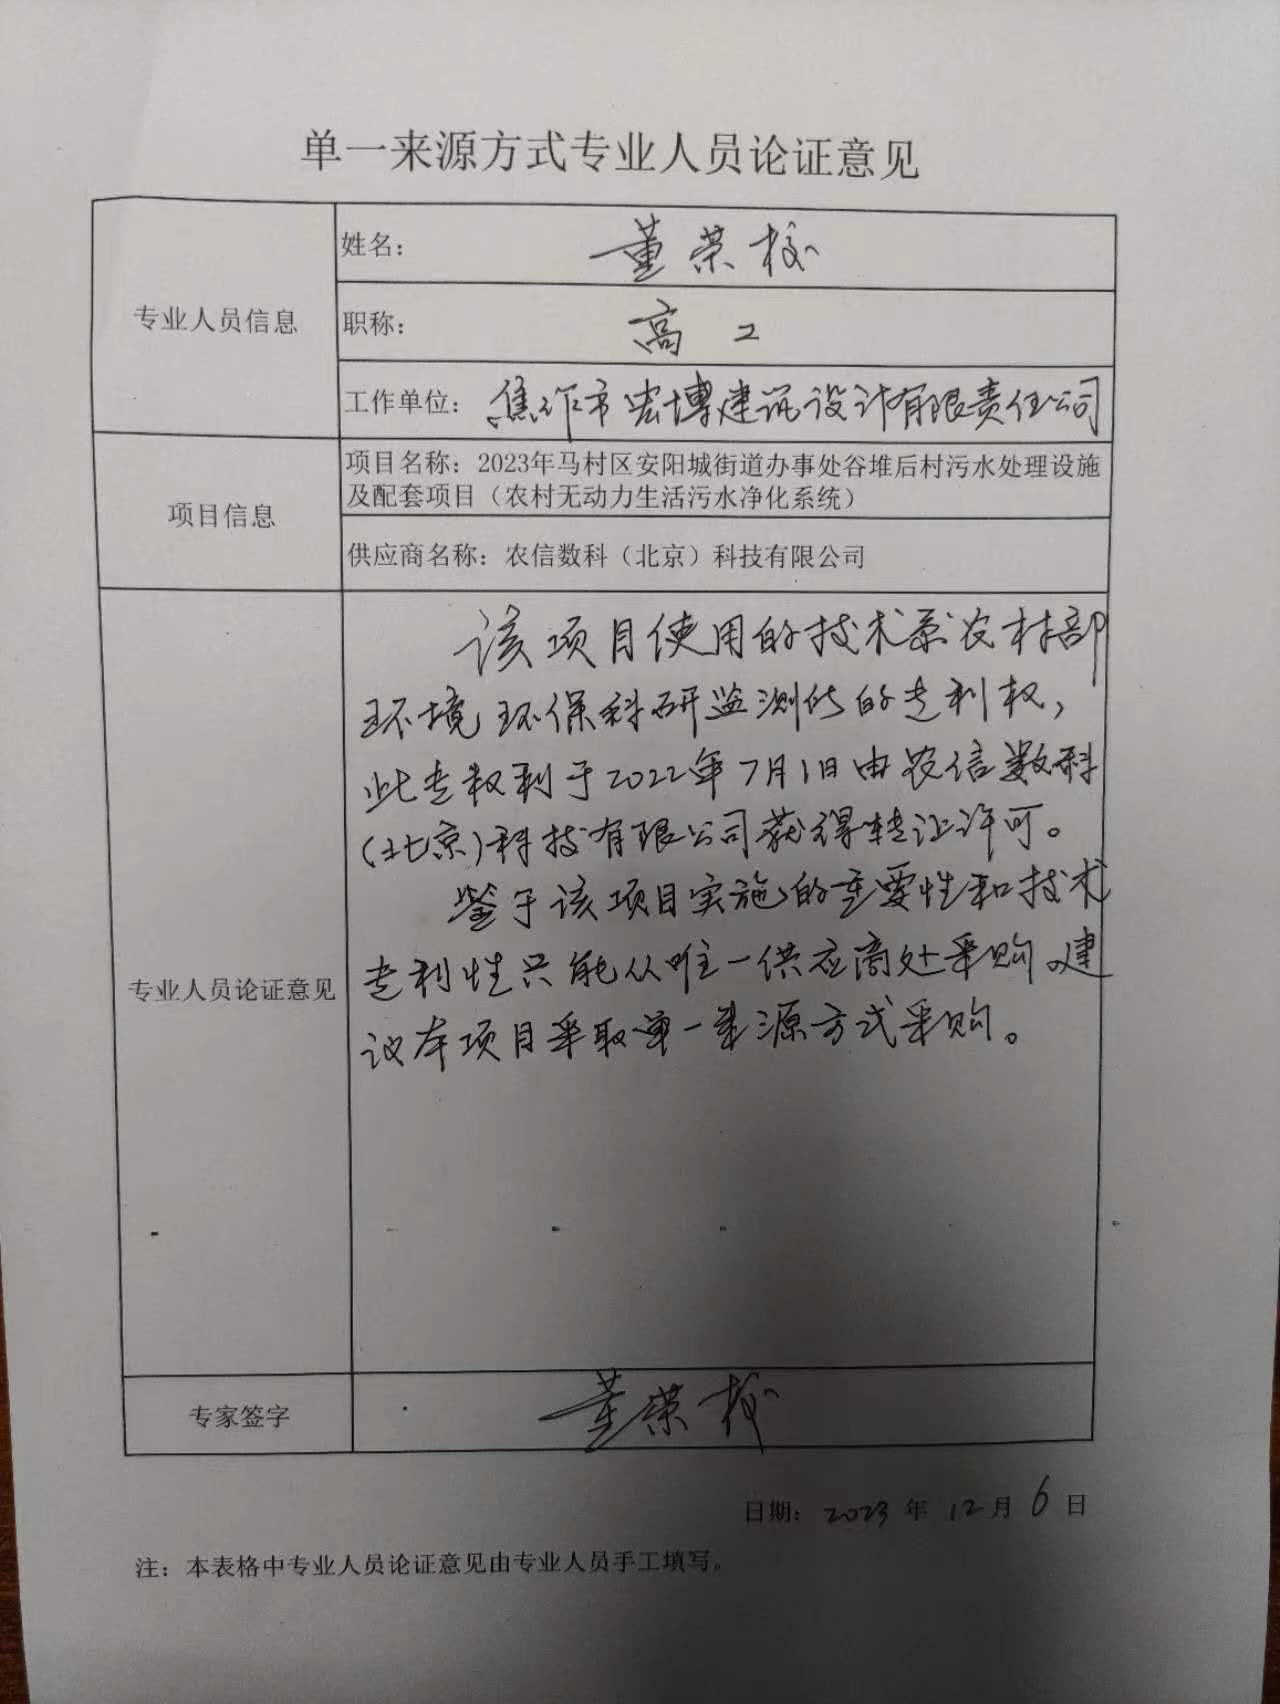 单一来源方式专业人员论证意见
专业人员信息
姓名：董荣校
职称：高工
工作单位：焦作市宏博建筑设计有限责任公司
项目信息
项目名称：2023年马村区安阳城街道办事处谷堆后村污水处理设施
及配套项目（农村无动力生活污水净化系统）
供应商名称：农信数科（北京）科技有限公司
专业人员论证意见
该项目使用的技术系农村部
环境环保科研监测所的专利权，
此专权利于2022年7月1日由农信数科
（北京）科技有限公司获得转让许可。
鉴于该项目实施的重要性和技术
专利性只能从唯一供应商处采购建
议本项目采取单一来源方式采购。
专家签字
董荣校
日期：2023年12月6日
注：本表格中专业人员论证意见由专业人员手工填写。